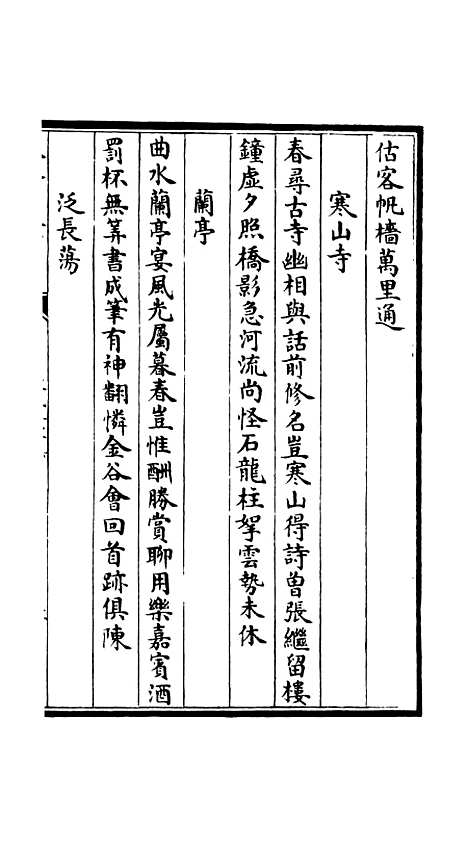 估客帆檣萬里通
寒山寺
春尋古寺幽相與話前修名豈寒山得詩曽張繼留樓
鐘虛夕照橋影急河流尚怪石龍柱拏雲勢未休
蘭亭
曲水蘭亭宴風光屬暮春豈惟酬勝賞聊用樂嘉賓酒
罰杯無筭書成筆有神翻憐金谷會回首跡俱陳
泛長蕩